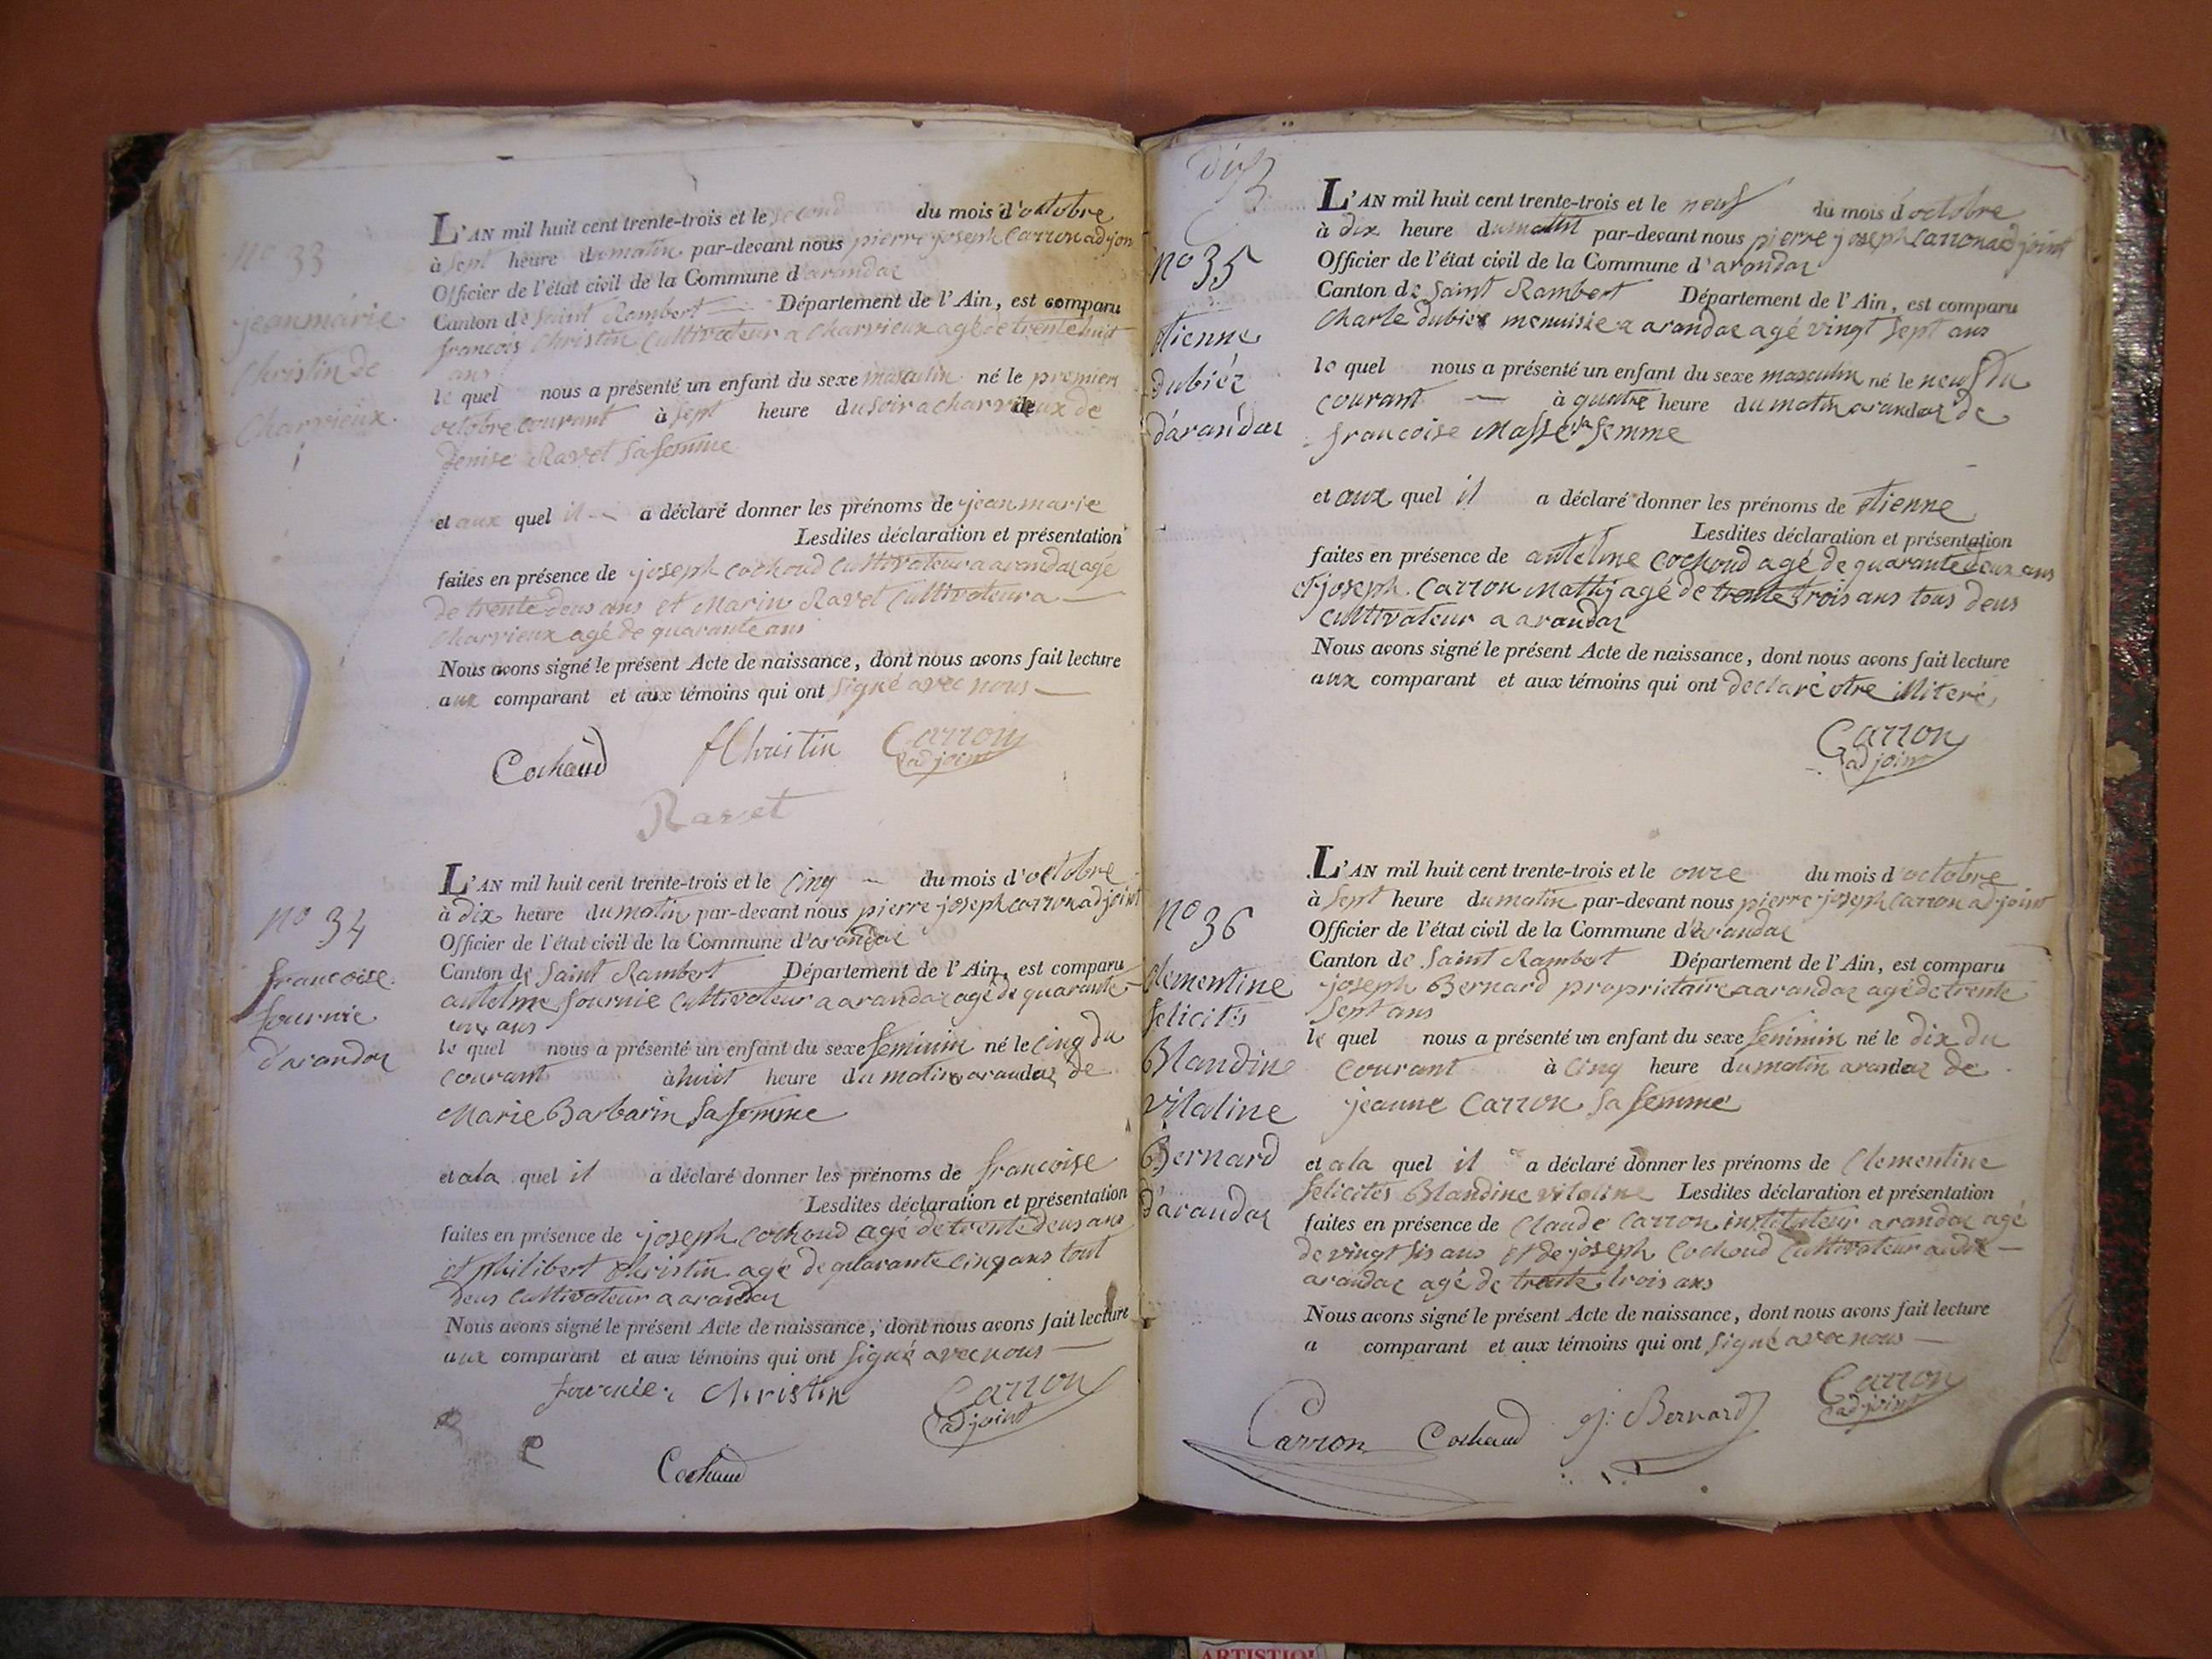 No 33
jeanmarie
Christin de
Charvieux
L'AN mil huit cent trente-trois et le second du mois d'octobre
à sept heure du matin par-devant nous pierre joseph Carron adjoin
Officier de l'état civil de la Commune d'arandaz
Canton de Saint Rambert Département de l'Ain, est comparu
francois Christin Cultivateur a Charvieux agé de trente huit
ans
le quel nous a présenté un enfant du sexe masculin né le premier
octobre courant à sept heure du soir a charvieux de
denise Ravet sa femme
et aux quel il a déclaré donner les prénoms de jean marie
Lesdites déclaration et présentation
faites en présence de joseph Cochoud Cultivateur a arandaz agé
de trente deus ans et Marin Ravet Cultivateur a
Charvieux agé de quarante ans
Nous avons signé le présent Acte de naissance, dont nous avons fait lecture
aux comparant et aux témoins qui ont signé avec nous
Cochaud fChristin Carron
adjoint
Ravet
No 34
francoise
fournie
d'arandaz
L'AN mil huit cent trente-trois et le cinq du mois d'octobre
à dix heure du matin par-devant nous pierre joseph carron adjoint
Officier de l'état civil de la Commune d'arandaz
Canton de Saint Rambert Département de l'Ain, est comparu
antelme fournie Cultivateur a arandaz agé de quarante
un ans
le quel nous a présenté un enfant du sexe feminin né le cinq du
courant à huit heure du matin a arandaz de
Marie Barbarin sa femme
et a la quel il a déclaré donner les prénoms de francoise
Lesdites déclaration et présentation
faites en présence de joseph Cochoud agé de trente deus ans
et philibert Christin agé de quarante cinq ans tout
deus Cultivateur a arandaz
Nous avons signé le présent Acte de naissance, dont nous avons fait lecture
aux comparant et aux témoins qui ont signé avec nous
fournier Christin Carron
adjoint
Cochaud
No 35
étienne
dubiéz
d'arandaz
L'AN mil huit cent trente-trois et le neuf du mois d'octobre
à dix heure du matin par-devant nous pierre joseph Carron adjoint
Officier de l'état civil de la Commune d'arandaz
Canton de Saint Rambert Département de l'Ain, est comparu
Charle dubiez menuisie a arandaz agé vingt sept ans
le quel nous a présenté un enfant du sexe masculin né le neuf du
courant à quatre heure du matin a arandaz de
francoise Massé sa femme
et aux quel il a déclaré donner les prénoms de étienne
Lesdites déclaration et présentation
faites en présence de antelme Cochoud agé de quarante deux ans
et joseph Carron agé de trente trois ans tous deus
Cultivateur a arandaz
Nous avons signé le présent Acte de naissance, dont nous avons fait lecture
aux comparant et aux témoins qui ont declaré être illiteré
Carron
adjoint
No 36
Clementine
félicités
Blandine
vitaline
Bernard
d'arandaz
L'AN mil huit cent trente-trois et le onze du mois d'octobre
à sept heure du matin par-devant nous pierre joseph Carron adjoint
Officier de l'état civil de la Commune d'arandaz
Canton de Saint Rambert Département de l'Ain, est comparu
joseph Bernard proprietaire a arandaz agé de trente
sept ans
le quel nous a présenté un enfant du sexe feminin né le dix du
courant à cinq heure du matin a arandaz de
jeanne Carron sa femme
et a la quel il a déclaré donner les prénoms de Clementine
felicités Blandine vitaline Lesdites déclaration et présentation
faites en présence de Claude Carron instituteur a arandaz agé
de vingt sis ans et de joseph Cochoud Cultivateur au dit
arandaz agé de trente trois ans
Nous avons signé le présent Acte de naissance, dont nous avons fait lecture
a comparant et aux témoins qui ont signé avec nous
Carron Cochaud j: Bernard Carron
adjoint